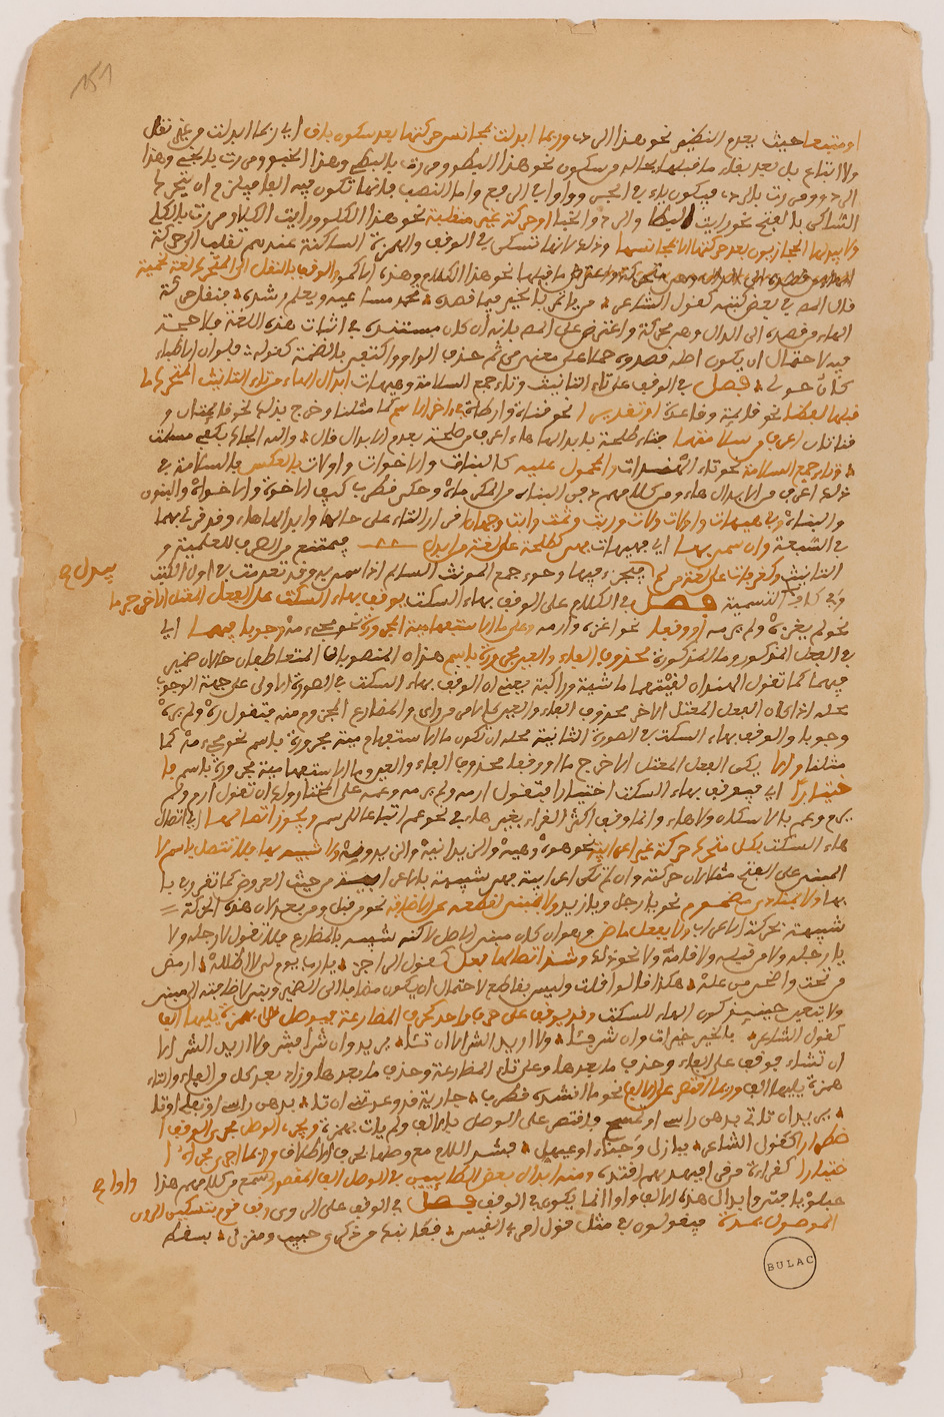 او متبعا حيث يعدم النظير نحو هذا الردء وربما ابدلت بمجانس حركتها بعد سكون باق اي ربما ابدلت من غير نقل
ولا اتباع بل بعد بقاء ما قبلها بحاله من سكون نحو هذا البطو ومررت بالبطي وهذا الخبو ومررت بالخبي وهذا
الردو ومررت بالردي فيكون ياء في الجر وواوا في الرفع واما النصب فانها تكون فيه الفا فيلزم ان يتحرك
الساكن بالفتح نحو رايت البطا والردا والخبا او حركة غير منقلبة نحو هذا الكلو ورايت الكلا ومررت بالكلي
ولا يبدلها الحجازيون بعد حركة الا بمجانسها وذلك لانها تسكن في الوقف والهمزة الساكنة عندهم تقلب الى حركة
ما قبلها نحو هذا الكلا وهذه اكمو والوقف بالنقل الى المتحرك لغة لخمية
قال المص في بعض كتبه كقول الشاعر من ياتمر بالخير فيما قصده تحمد مساعيه ويعلم رشده فنقل حركة
الهاء من قصده الى الدال وهي متحركة واعترض على المص بانه ان كان مستنده في اثبات هذه اللغة فلا حجة
فيه لاحتمال ان يكون اصله قصدوه حملا على معنى من ثم حذف الواو واكتفى بالضمة كقوله فلو ان الاطباء
كان حولي فصل في الوقف على تاء التانيث وتاء جمع السلامة وهيهات ابدال الهاء من تاء التانيث المتحرك ما
قبلها لفظا نحو قائمة وقاعدة او تقديرا نحو فتاة وارطاة في اخر الاسم كما مثلنا وخرج بذلك نحو قائمتان و
فتاتان اعرف من سلامتها فتاء طلحة بابدالها هاء اعرف من طلحت بعدم الابدال قال والله انجاك بكفي مسلمت
وتاء جمع السلامة نحو تاء الهندات والمحمول عليه كالبنات والاخوات واولات بالعكس فالسلامة في
ذلك اعرف من الابدال هاء ومن كلامهم دفن البناه من المكرماه وحكى قطرب كيف الاخوة والاخواه والبنون
والبناه وفي هيهات واولات ولات وربت وثمت وابت وجهان من اقرار التاء على حالها وابدالها هاء وقد قرئ بهما
في السبعة وان سمي بها اي بهيهات فهي كطلحة على لغة من ابدل فيمتنع من الصرف للعلمية و
يبدل ح
التانيث وكعرفات على لغة من لم فيجري فيها وجوه جمع المونث السالم اذا سمي به وقد تقدمت في اول الكتب
وفي كلام التسمية فصل في الكلام على الوقف بهاء السكت يوقف بهاء السكت على الفعل المعتل الاخر جزما
نحو لم يغزه ولم يرمه او وقفا نحو اغزه وارمه وعلى ما الاستفهامية المجرورة نحو مجيء مه وجوبا فيهما اي
في الفعل المذكور وما المذكورة محذوف الفاء والعين مجرورة باسم هذان المنصوبان المتعاطفان حالان ضمير
فيهما كما تقول الهندان لقيتهما ماشية وراكبة يعني ان الوقف بهاء السكت في الصورة الاولى على جهة الوجوب
محله اذا كان الفعل المعتل الاخر محذوف الفاء والعين كالامر من راى والمضارع المجزوم منه فتقول ره ولم يره
وجوبا والوقف بهاء السكت في الصورة الثانية محله ان تكون ما الاستفهامية مجرورة باسم نحو مجيء مه كما
مثلنا والا يكن الفعل المعتل الاخر جزما او وقفا محذوف الفاء والعين وما الاستفهامية مجرورة باسم فا
ختيارا اي فيوقف بهاء السكت اختيارا فتقول ارمه ولم يرمه وعمه على المختار ولك ان تقول ارم ولم
يرم وعم بالاسكان ولا هاء وانما وقف اكثر القراء بغير هاء في نحو عم اتباعا للرسم ويجوز اتصالها اي اتصال
هاء السكت بكل متحرك حركة غير اعرابية نحو هوه وهيه والزيدانه والزيدونه ولا شبيهة بها فلا تتصل باسم لا
المبني على الفتح مثلا لان حركته وان لم تكن اعرابية فهي شبيهة بالاعرابية من حيث العروض كما تقرر في با
بها ولا بمنادى مضموم نحو يا رجل ويا زيد ولا بمبني لقطعه عن الاضافة نحو من قبل ومن بعد لان هذه الحركة
شبيهة بحركة الاعراب ولا بفعل ماض وهو ان كان مبني الاصل لاكنه شبيه بالمضارع فلا تقول لا رجله ولا
يا رجله ولا من قبله ولا قامه ولا نحو ذلك وشذ اتصالها بعل كقول الراجز يا رب يوم لي لا اظلله ارمض
من تحت واضحى من عله هكذا قالوا قلت وليس بقاطع لاحتمال ان يكون مضافا الى الضمير وبني لاضافته الى مبني
ولا يتعين حينئذ كون الهاء للسكت وقد يوقف على حرف واحد كحرف المضارعة فيوصل بهمزة يليها الف
كقول الشاعر بالخير خيرات وان شرا فئا ولا اريد الشر الا ان تئا يريد وان شرا فشر ولا اريد الشر الا
ان تشاء فوقف على الفاء وحذف ما بعدها وعلى تاء المضارعة وحذف ما بعدها وزاد بعد كل من الفاء والتاء
همزة يليها الف وربما اقتصر على الالف نحو ما انشده قطرب جارية قد وعدتني ان تا تدهن راسي او تفلي او تا
يريد ان تاتي تدهن راسي او تمسح فاقتصر على الوصل بالالف ولم يات بهمزة ويجرى الوصل مجرى الوقف ا
ضطرارا كقول الشاعر ببازل وجناء او عيهل فشدد اللام مع وصلها بحرف الاطلاق وربما اجري مجراه ا
ختيارا كقراءة من قرا فبهداهم اقتده ومنه ابدال بعض الطائيين في الوصل الف المقصور سمع من كلامهم هذا
واوا ح
حبلو يا فتى وابدال هذه الالف واوا انما يكون في الوقف فصل في الوقف على الروي وقف قوم بتسكين الروي
الموصول بمدة فيقولون في مثل قول امرئ القيس قفا نبك من ذكرى حبيب ومنزل بسقط
BULAC